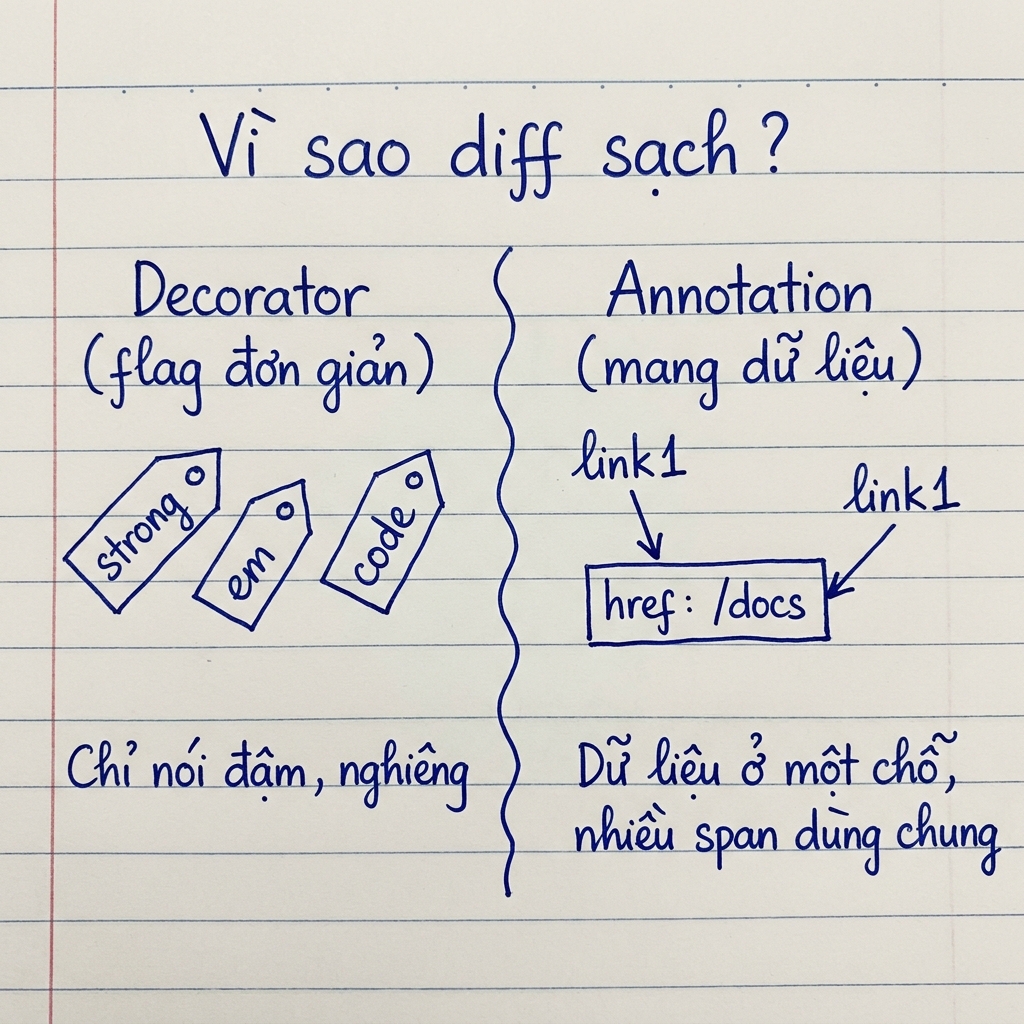 Vì sao diff sạch ?
Decorator
(flag đơn giản)
strong
em
code
Chỉ nói đậm, nghiêng
Annotation
(mang dữ liệu)
link1
link1
href: /docs
Dữ liệu ở một chỗ,
nhiều span dùng chung